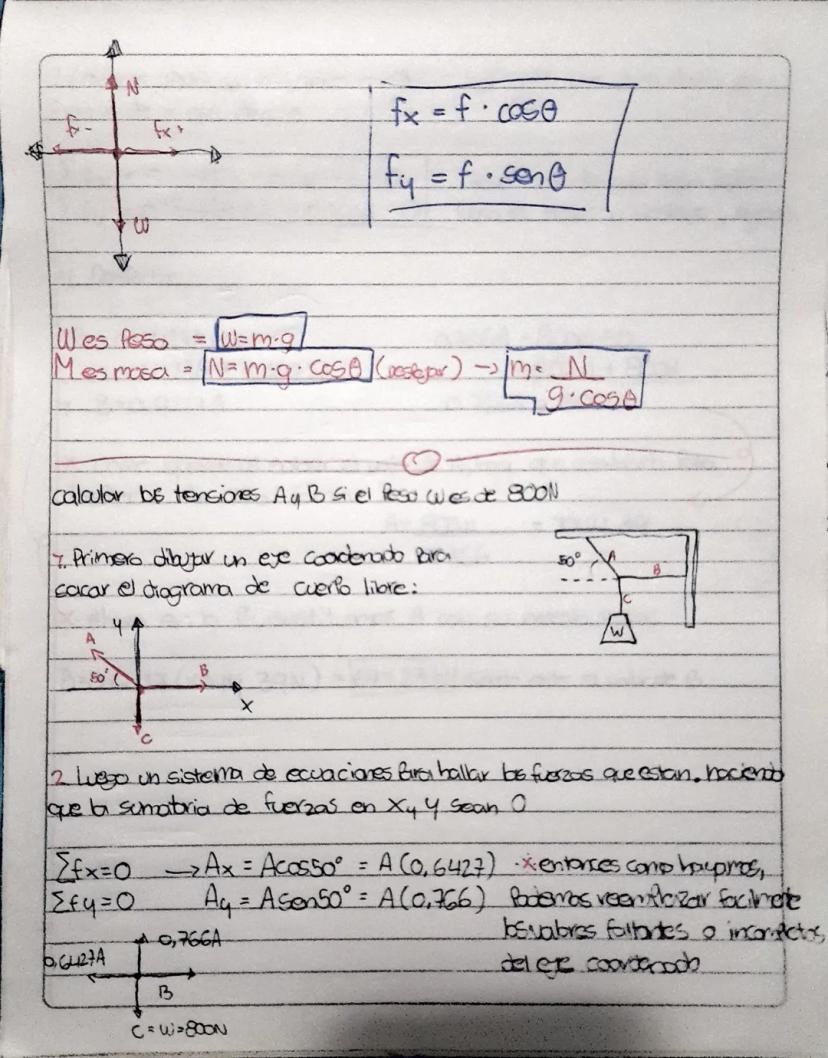 N
fx-
fx+
W
fx = f · cosθ
fy = f · senθ
W es Peso = W=m·g
M es masa = N=m·g·cosθ (despejar) → m= N
g·cosθ
calcular los tensiones A y B si el Peso W es de 800N
1. Primero dibujar un eje coordenado Para
sacar el diagrama de cuerpo libre:
50° A B
C
W
y
A
50° B
x
C
2. Luego un sistema de ecuaciones Para hallar las fuerzas que estan. haciendo
que la sumatoria de fuerzas en X y Y sean 0
Σfx=0 → Ax = Acos50° = A(0,6427) *entonces como
Σfy=0 Ay = Asen50° = A(0,766) Podemos reemplazar facilmente
0,766A los valores faltantes o incompletos,
0,6427A del eje coordenado
B
C = W=800N